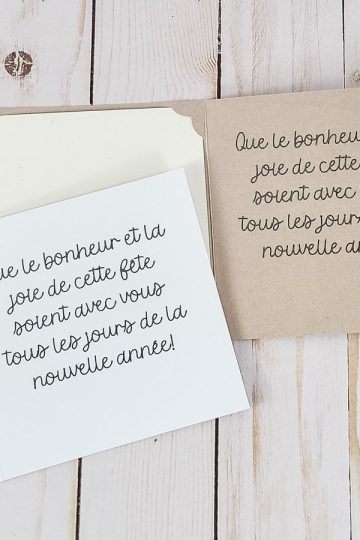 ue le bonheur et la
joie de cette fête
soient avec vous
tous les jours de la
nouvelle année!
Que le bonheu
joie de cette
soient avec
tous les jours
nouvelle an